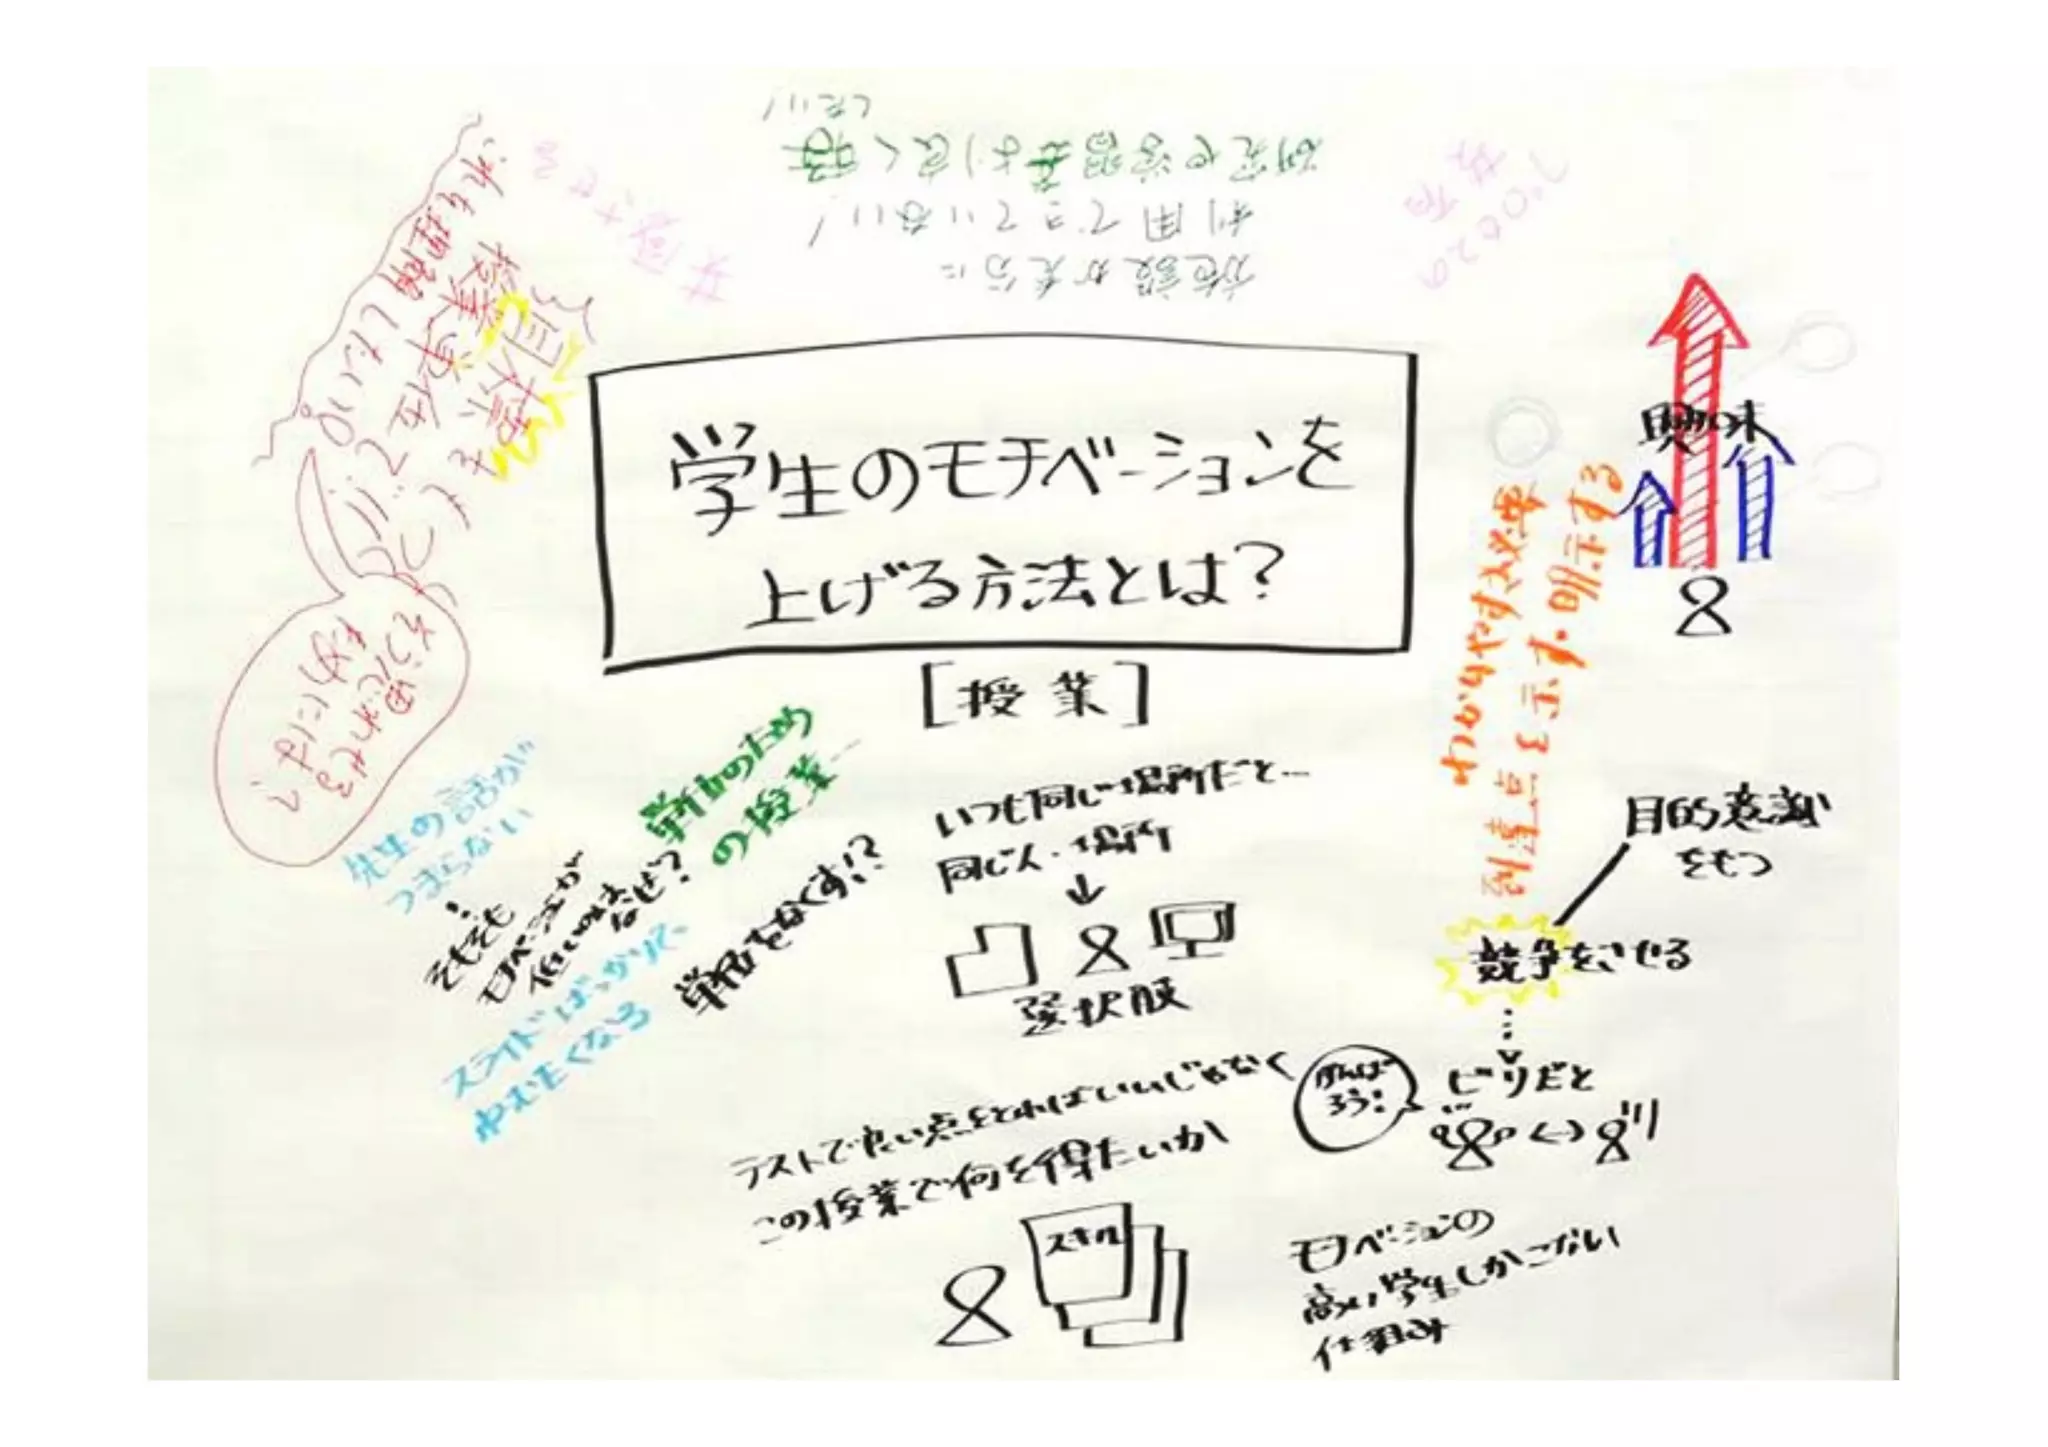 学生のモチベーションを
上げる方法とは?
[授業]
施設が充分に
利用できていない!
研究や演習をより良く
したい!
共感させる
プロセスの
共有
目標をもつ
授業単位で
これを理解したい。
そう思わせる
ためには?
先生の話が
つまらない
そもそも
モチベーションが
低いのはなぜ?
スライドばっかりで
ねむくなる
単位のため
の授業…
単位をなくす!?
いつも同じ場所だと…
同じ人・場所
↓
選択肢
テストで良い点をとればいいじゃなく
この授業で何を得たいか
スキル
興味
わかりやすさ必要
到達点を示す・明示する
目的意識
をもつ
競争をさせる
ビリだと
がんば
ろう!
モチベーションの
高い学生しかこない
仕組み